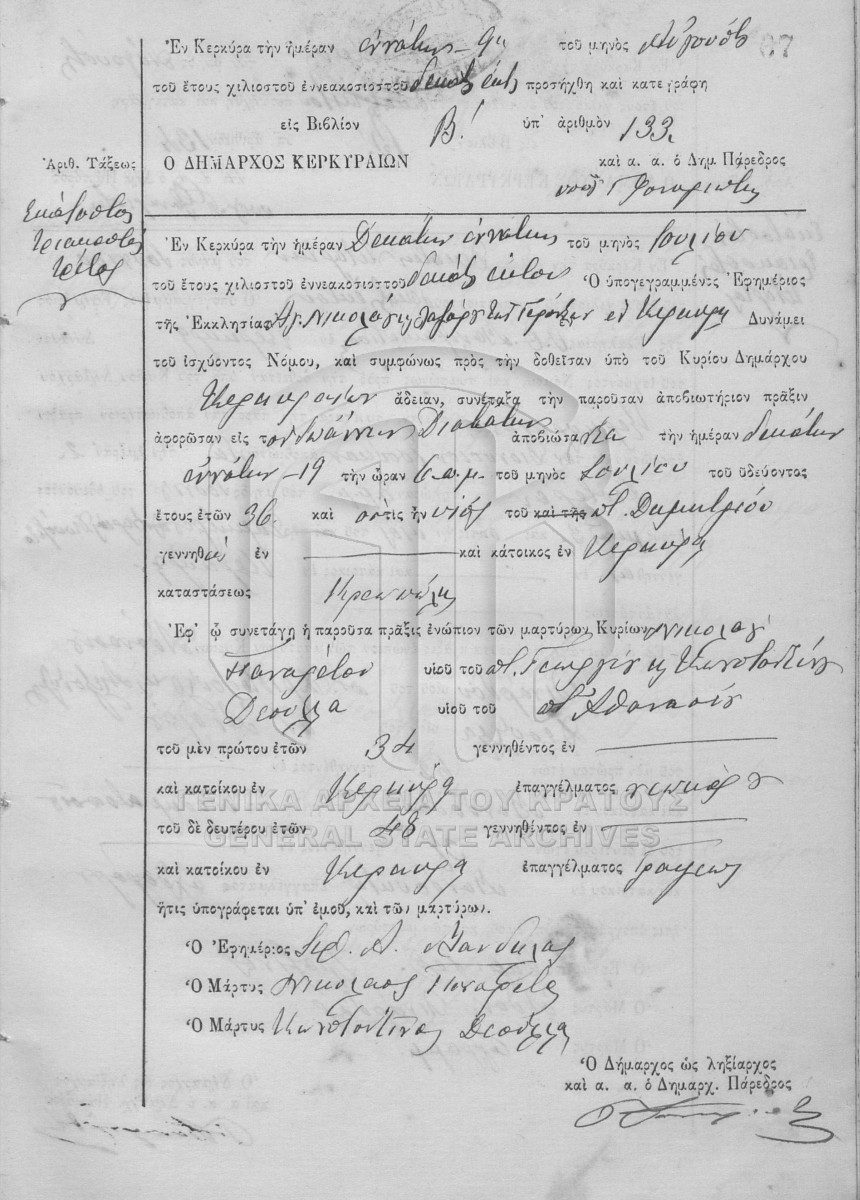 67
Ἐν Κερκύρᾳ τὴν ἡμέραν ἐννάτην 9ην τοῦ μηνὸς Αὐγούστου
τοῦ ἔτους χιλιοστοῦ ἐννεακοσιοστοῦ δεκάτου ἕκτου προσήχθη καὶ κατεγράφη
εἰς Βιβλίον Β! ὑπ' ἀριθμὸν 133.
Ἀριθ. Τάξεως
Ὁ ΔΗΜΑΡΧΟΣ ΚΕΡΚΥΡΑΙΩΝ καὶ α. α. ὁ Δημ. Πάρεδρος
Ἑκατοστὸς
τριακοστὸς
τρίτος
Ἐν Κερκύρᾳ τὴν ἡμέραν Δεκάτην ἐννάτην τοῦ μηνὸς Ἰουλίου
τοῦ ἔτους χιλιοστοῦ ἐννεακοσιοστοῦ δεκάτου ἕκτου Ὁ ὑπογεγραμμένος Ἐφημέριος
τῆς Ἐκκλησίας Ἁγ. Νικολάου Λαζάρου τῶν Γερόντων ἐν Κερκύρᾳ Δυνάμει
τοῦ ἰσχύοντος Νόμου, καὶ συμφώνως πρὸς τὴν δοθεῖσαν ὑπὸ τοῦ Κυρίου Δημάρχου
Κερκυραίων ἄδειαν, συνέταξα τὴν παροῦσαν ἀποβιωτήριον πρᾶξιν
ἀφορῶσαν εἰς τὸν Ἰωάννην ἀποβιώσαντα τὴν ἡμέραν δεκάτην
ἐννάτην 19 τὴν ὥραν 6 π.μ. τοῦ μηνὸς Ἰουλίου τοῦ ὁδεύοντος
ἔτους ἐτῶν 36 καὶ ὅστις ἦν υἱὸς τοῦ καὶ τῆς π. Δημητρίου
γεννηθεὶς ἐν καὶ κάτοικος ἐν Κερκύρᾳ
καταστάσεως Κρεωπώλης
Ἐφ' ᾧ συνετάγη ἡ παροῦσα πρᾶξις ἐνώπιον τῶν μαρτύρων Κυρίων Νικολάου
Παναρέτου υἱοῦ τοῦ π. Γεωργίου κ Κωνσταντίνου
Δεσύλλα υἱοῦ τοῦ π. Ἀθανασίου
τοῦ μὲν πρώτου ἐτῶν 34 γεννηθέντος ἐν
καὶ κατοίκου ἐν Κερκύρᾳ ἐπαγγέλματος
ΓΕΝΙΚΑ ΑΡΧΕΙΑ ΤΟΥ ΚΡΑΤΟΥΣ
τοῦ δὲ δευτέρου ἐτῶν 48 γεννηθέντος ἐν
GENERAL STATE ARCHIVES
καὶ κατοίκου ἐν Κερκύρᾳ ἐπαγγέλματος Γραφέως
ἥτις ὑπογράφεται ὑπ' ἐμοῦ, καὶ τῶν μαρτύρων.
Ὁ Ἐφημέριος
Ὁ Μάρτυς Νικόλαος Παναρέτος
Ὁ Μάρτυς Κωνσταντίνος Δεσύλλας
Ὁ Δήμαρχος ὡς ληξίαρχος
καὶ α. α. ὁ Δημαρχ. Πάρεδρος